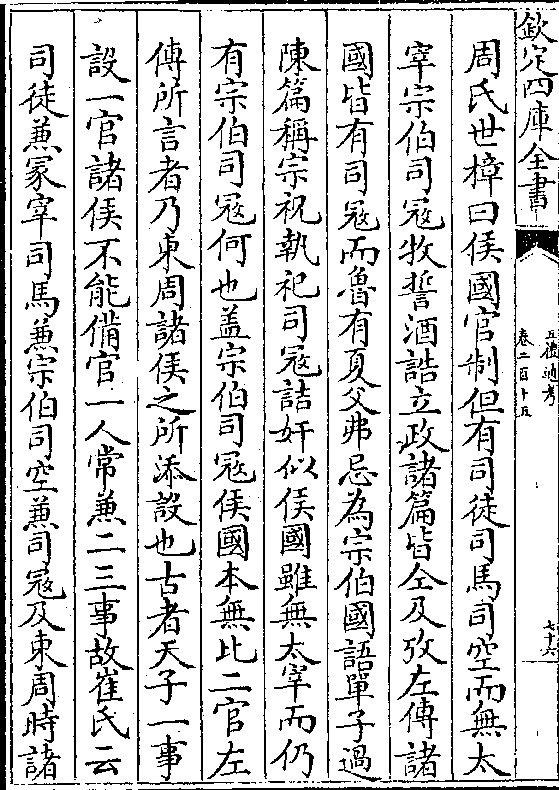 欽定四庫全書
五禮通考
卷二百十五
周氏世樟曰侯國官制但有司徒司馬司空而無太
宰宗伯司寇牧誓酒誥立政諸篇皆仝及攷左傳諸
國皆有司寇而魯有夏父弗忌為宗伯國語單子過
陳篇稱宗祝執祀司寇詰奸似侯國雖無太宰而仍
有宗伯司寇何也盖宗伯司寇侯國本無此二官左
傳所言者乃東周諸侯之所添設也古者天子一事
設一官諸侯不能備官一人常兼二三事故崔氏云
司徒兼冢宰司馬兼宗伯司空兼司寇及東周時諸